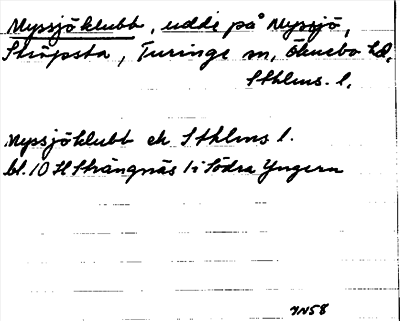 Nyssjöklubb, udde på Nyssjö,
Ströpsta, Turinge sn, Öknebo hd,
Sthlms l.
Nyssjöklubb ek Sthlms l.
bl. 10 H Strängnäs 1i Södra Yngern
IN58